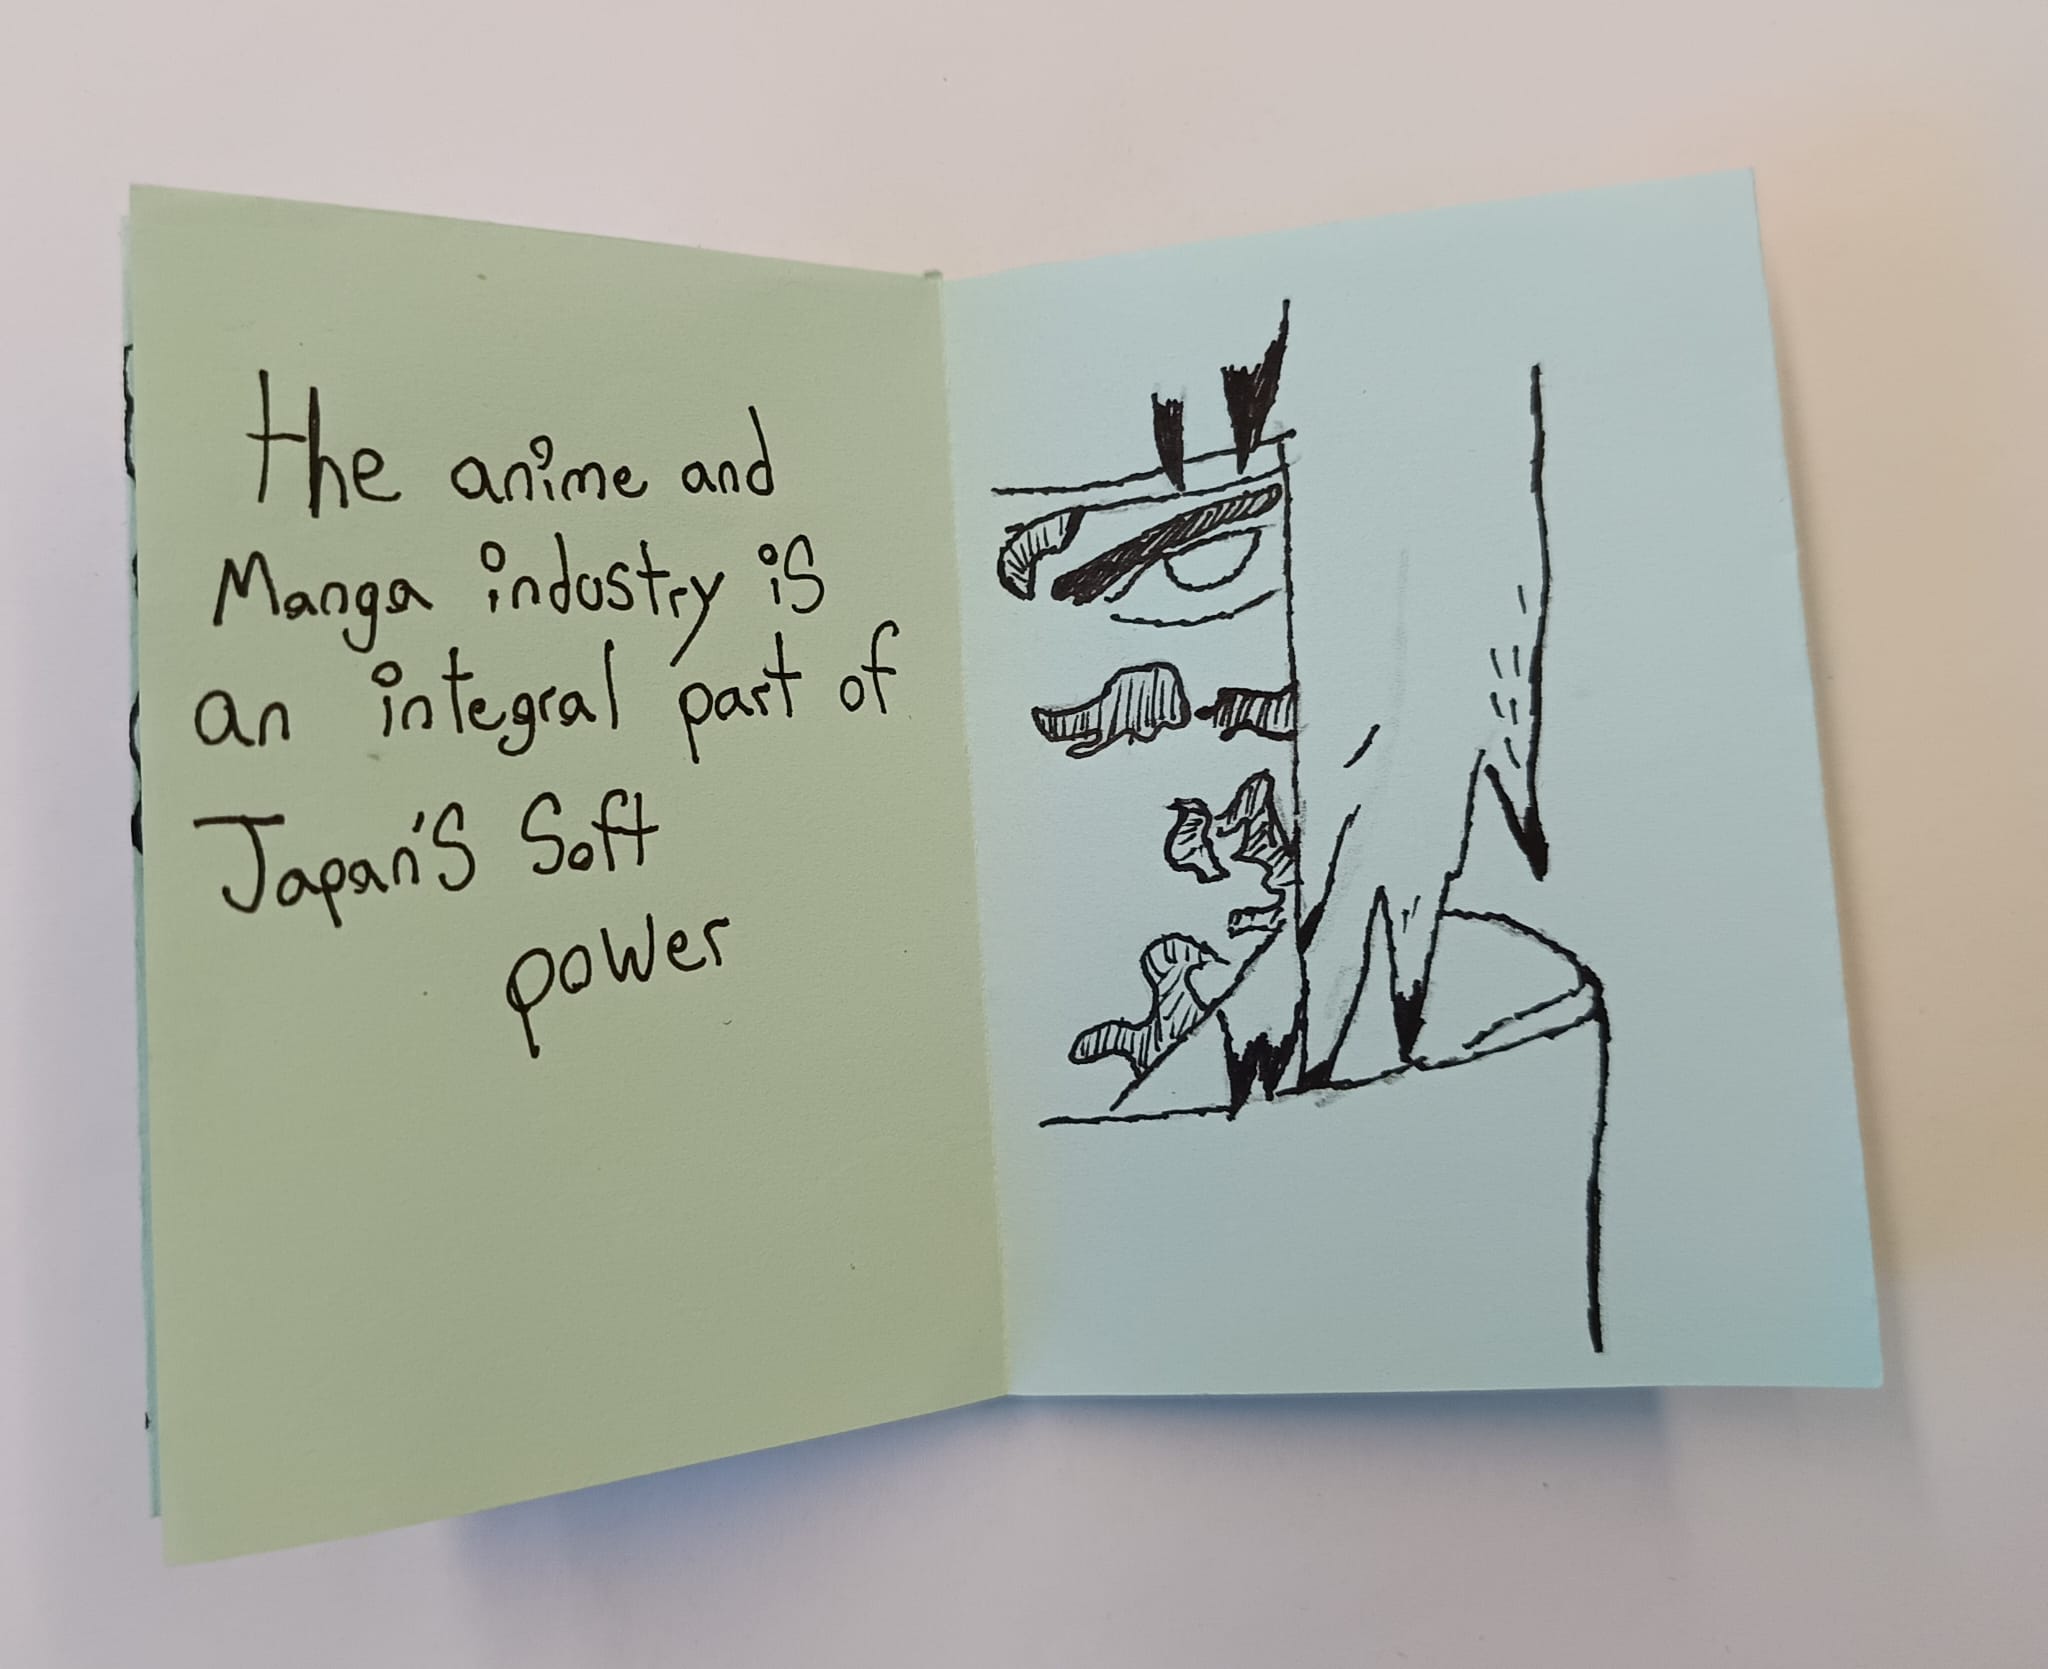 the anime and
Manga industry is
an integral part of
Japan's Soft
power